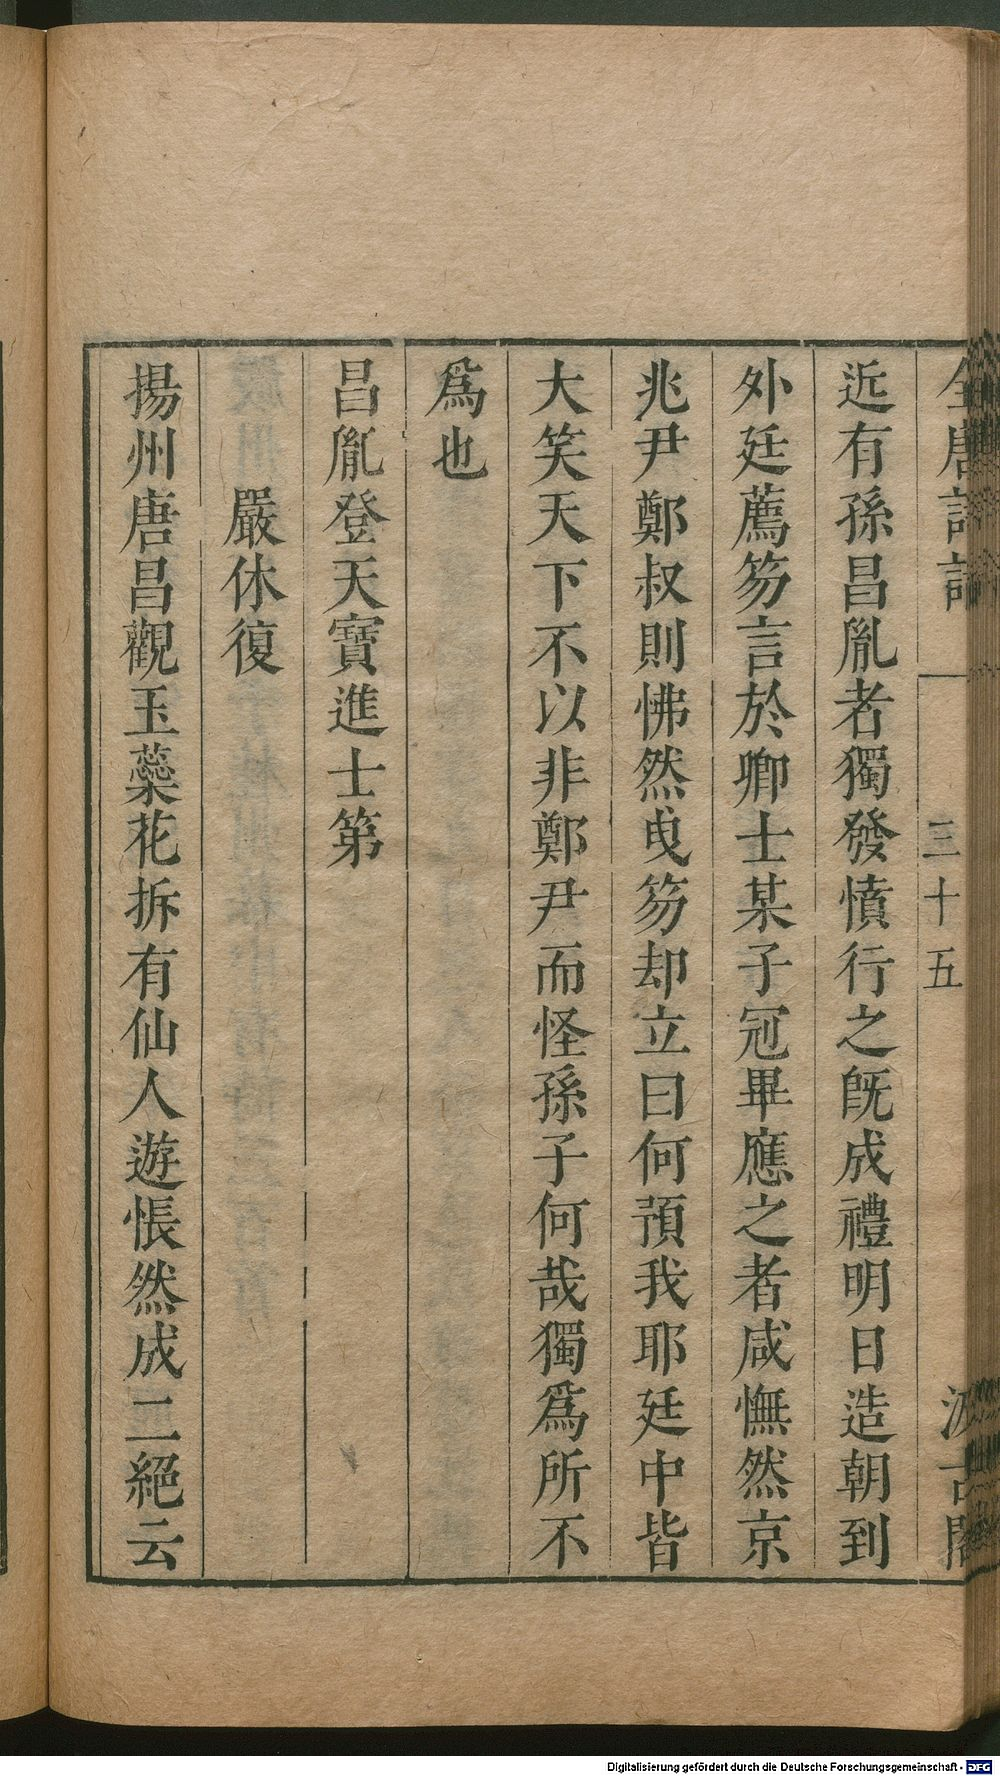 全唐詩話
三十五
汲古閣
近有孫昌胤者獨發憤行之旣成禮明日造朝到
外廷薦笏言於卿士某子冠畢應之者咸憮然京
兆尹鄭叔則怫然曵笏却立曰何預我耶廷中皆
大笑天下不以非鄭尹而怪孫子何哉獨爲所不
爲也
昌胤登天寶進士第
嚴休復
揚州唐昌觀玉蘂花拆有仙人遊悵然成二絕云
Digitalisierung gefördert durch die Deutsche Forschungsgemeinschaft - DFG